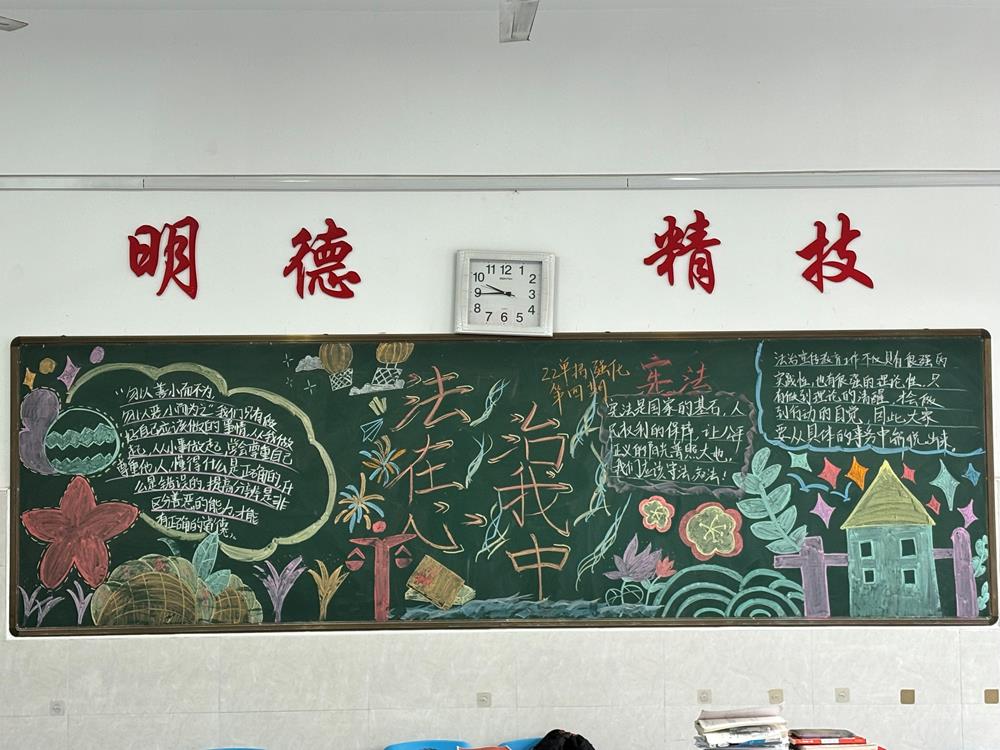 明 德 精 技
11 12 1
10 2
9 3
8 4
7 6 5
"勿以善小而不为,
勿以恶小而为之"我们只有做
让自己应该做的事情,从我做
起,从小事做起,学会尊重自己
尊重他人,懂得什么是正确的,什
么是错误的,提高分清是非
区分善恶的能力,才能
有正确的道德。
法在心
治我中
22单招强化
第四期
宪法
宪法是国家的基石,人
民权利的保障,让公平
正义的阳光普照大地。
我们应该守法,宪法!
法治宣传教育工作不仅具有很强的
实践性,也有很强的理论性,只
有做到理论的清醒,才会做
到行动的自觉,因此,大家
要从具体的事务中解脱出来